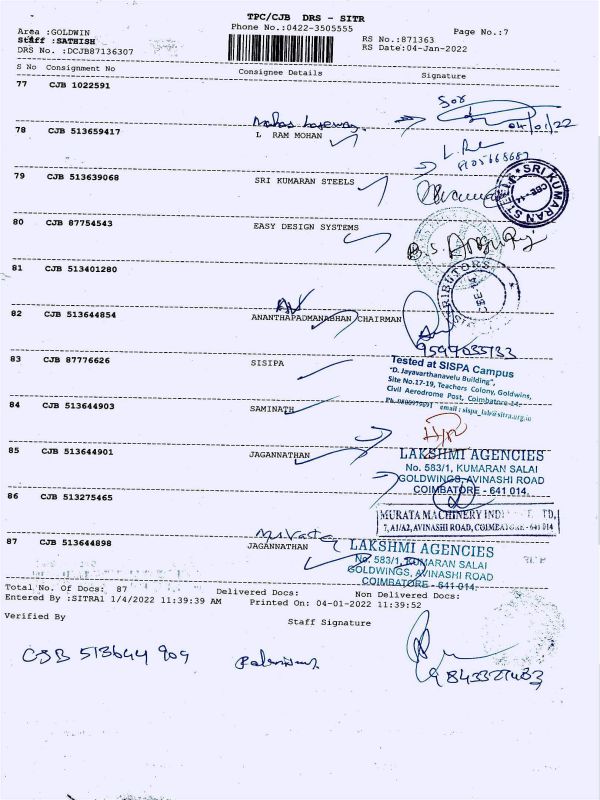 TPC/CJB DRS - SITR
Area :GOLDWIN
Phone No.:0422-3505555
Page No.:7
Staff :SATHISH
RS No.:871363
DRS No. :DCJB87136307
RS Date:04-Jan-2022
S No Consignment No Consignee Details Signature
77 CJB 1022591
for
04/01/22
78 CJB 513659417 L RAM MOHAN
79 CJB 513639068 SRI KUMARAN STEELS
SRI KUMARAN STEELS
80 CJB 87754543 EASY DESIGN SYSTEMS
81 CJB 513401280
82 CJB 513644854 ANANTHAPADMANABHAN CHAIRMAN
83 CJB 87776626 SISIPA
Tested at SISPA Campus
"D. Jayavarthanavelu Building",
Site No.17-19, Teachers Colony, Goldwins,
Civil Aerodrome Post, Coimbatore-14.
email : sispa_lab@sitra.org.in
84 CJB 513644903 SAMINATH
85 CJB 513644901 JAGANNATHAN
LAKSHMI AGENCIES
No. 583/1, KUMARAN SALAI
GOLDWINGS, AVINASHI ROAD
COIMBATORE - 641 014.
86 CJB 513275465
MURATA MACHINERY
7, A1/A2, AVINASHI ROAD, COIMBATORE - 641 014
87 CJB 513644898 JAGANNATHAN
LAKSHMI AGENCIES
No. 583/1, KUMARAN SALAI
GOLDWINGS, AVINASHI ROAD
COIMBATORE - 641 014.
Total No. Of Docs: 87 Delivered Docs: Non Delivered Docs:
Entered By :SITRA1 1/4/2022 11:39:39 AM Printed On: 04-01-2022 11:39:52
Verified By Staff Signature
CJB 513644909